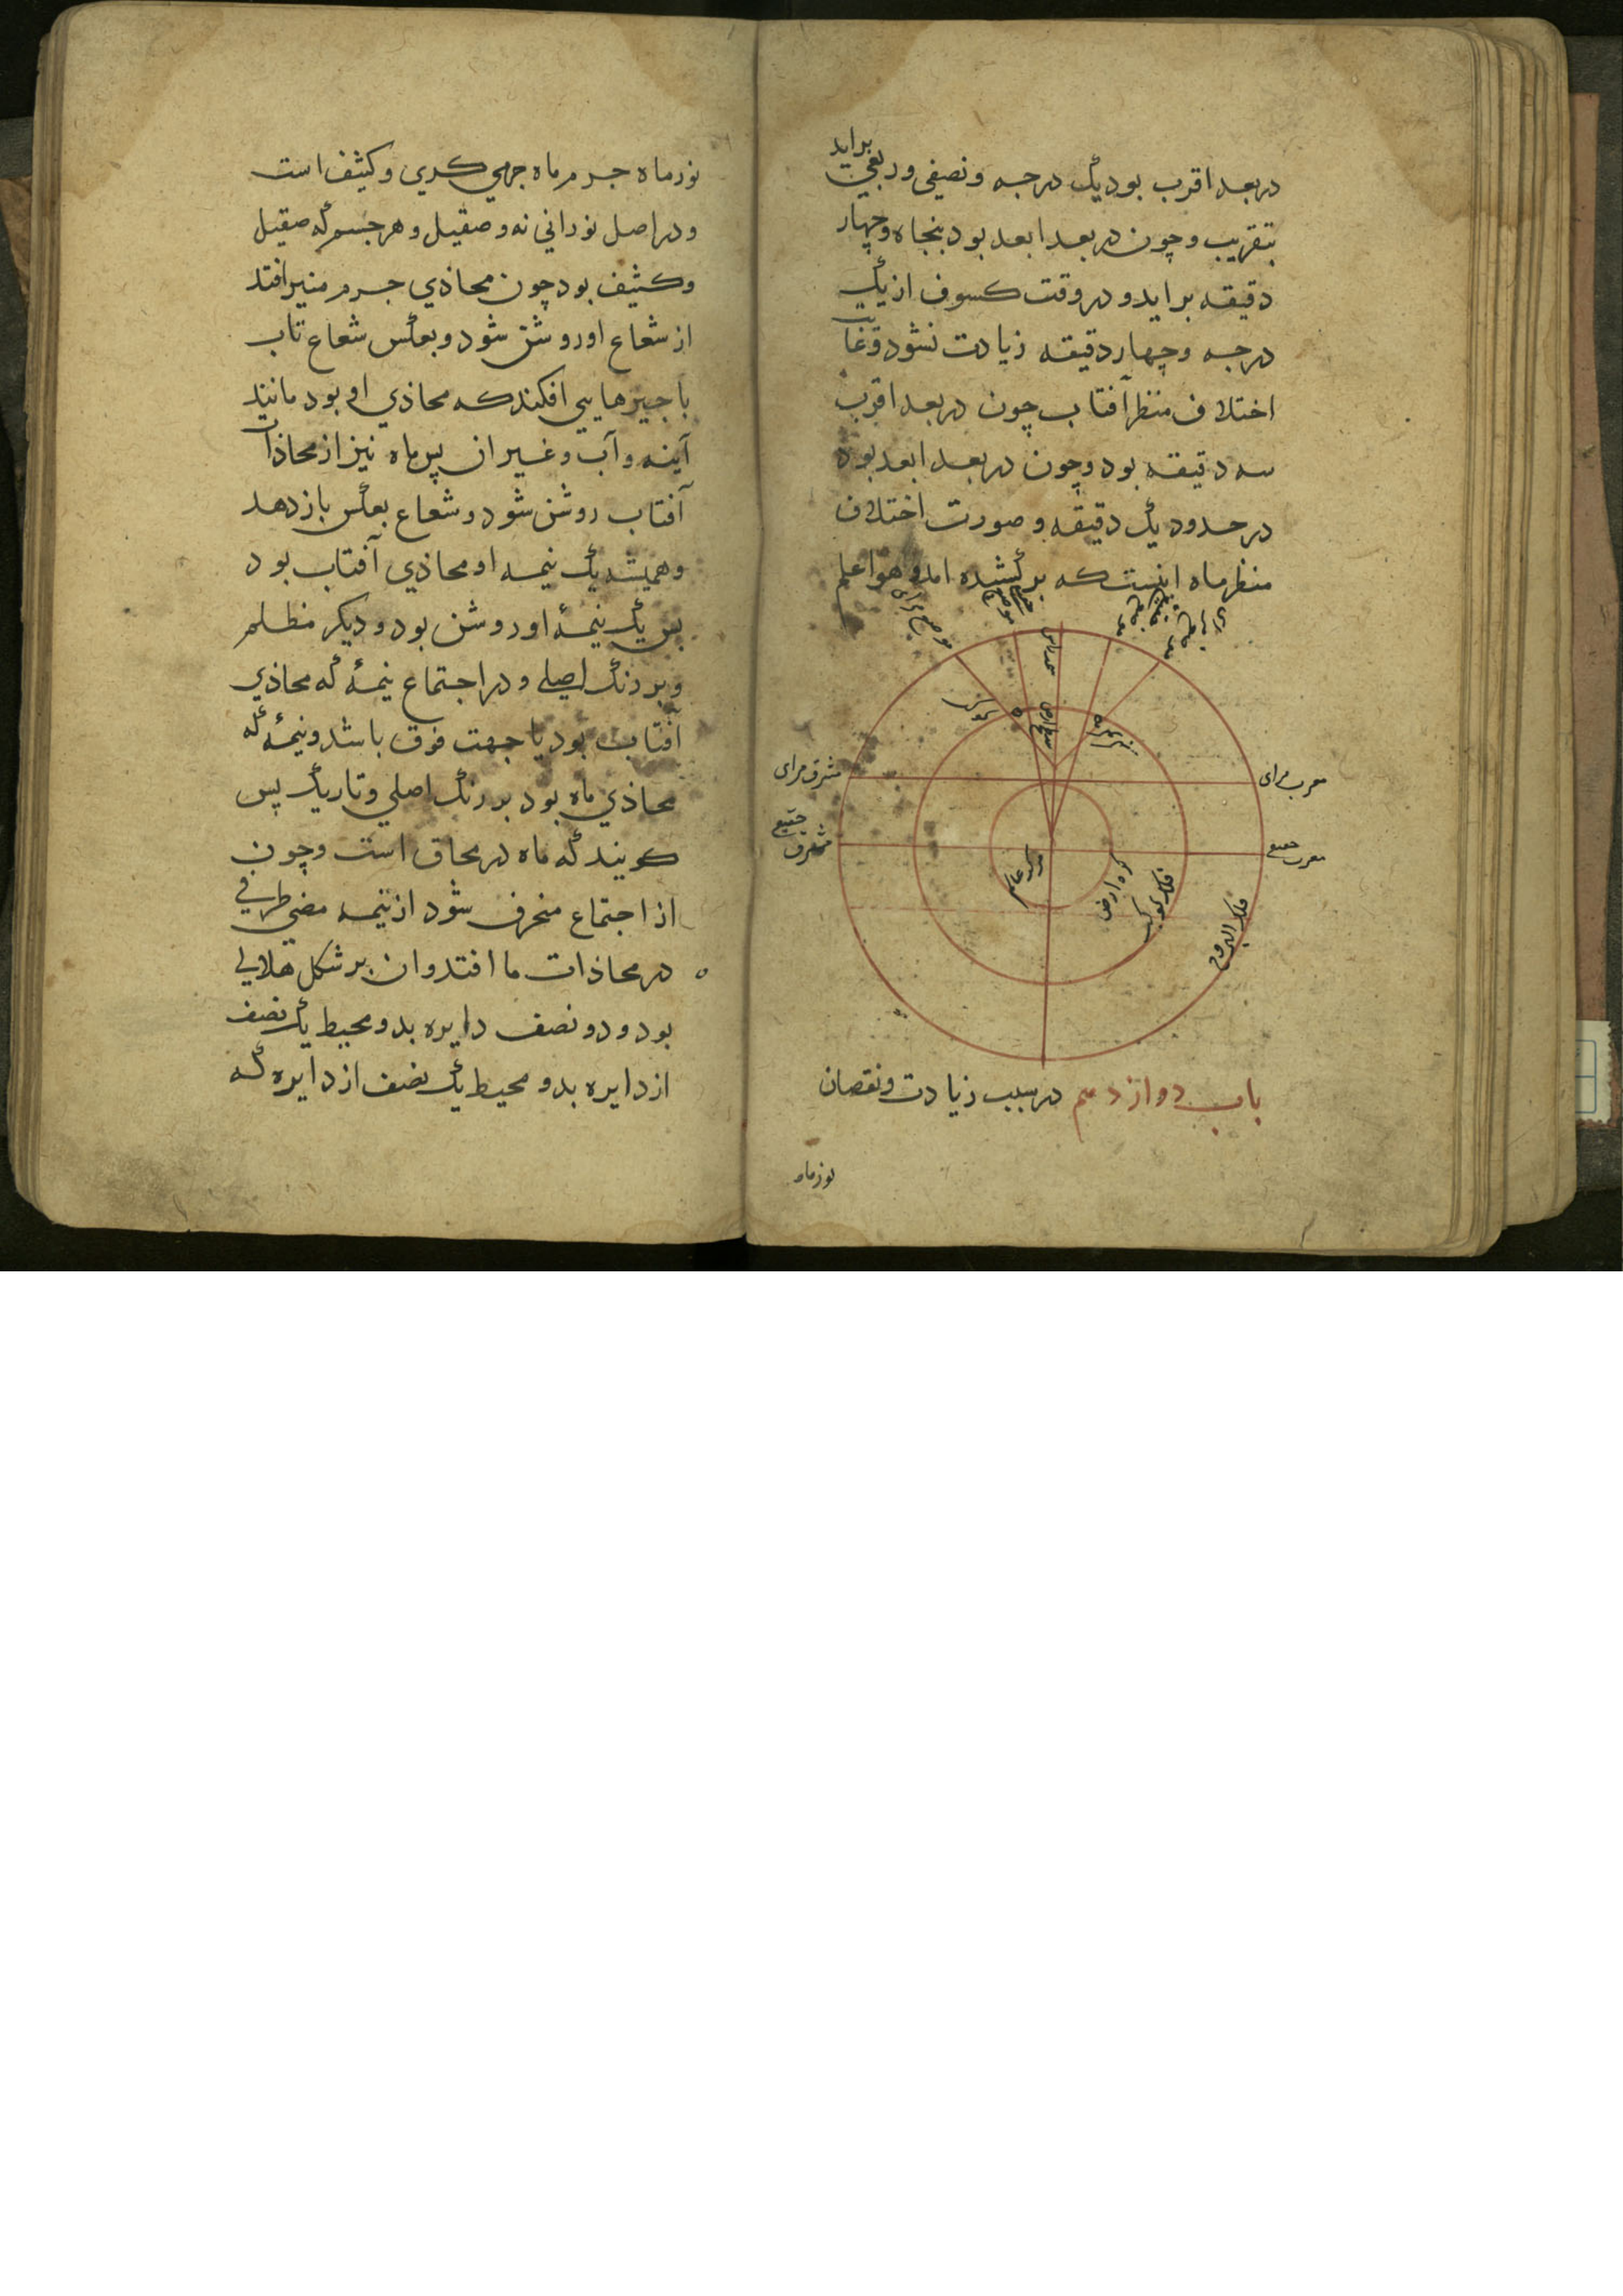 در بعد اقرب بود یک درجه و نصفی و ربعی براید
بتقریب و چون در بعد ابعد بود پنجاه و چهار
دقیقه براید و در وقت کسوف از یک
درجه و چهار دقیقه زیادت نشود و غایت
اختلاف منظر آفتاب چون در بعد اقرب
سه دقیقه بود و چون در بعد ابعد بود
در حدود یک دقیقه و صورت اختلاف
منظر ماه اینست که برکشیده امد و هو اعلم
موضع مرای
موضع
سمت راس
کوکب
سطح ارض
مشرق مرای
مغرب مرای
مشرق حقیقی
مغرب حقیقی
مرکز عالم
کره ارض
فلک کوکب
فلک البروج
باب دوازدهم در سبب زیادت و نقصان
نور ماه
نور ماه جرم ماه جرمی کری و کثیف است
و در اصل نورانی نه و صقیل و هر جسم که صقیل
و کثیف بود چون محاذی جرم منیر افتد
از شعاع او روشن شود و بعکس شعاع تاب
با چیزهایی افکند که محاذی او بود مانند
آینه و آب و غیر ان پس ماه نیز از محاذات
آفتاب روشن شود و شعاع بعکس باز دهد
و همیشه یک نیمه او محاذی آفتاب بود
پس یک نیمهٔ او روشن بود و دیکر مظلم
و بر رنک اصلی و در اجتماع نیمهٔ که محاذی
آفتاب بود یا جهت فوق باشد و نیمهٔ که
محاذی ماه بود بر رنک اصلی و تاریک پس
کویند که ماه در محاق است و چون
از اجتماع منحرف شود از نیمه مضی طرفی
در محاذات ما افتد و ان بر شکل هلالی
بود و دو نصف دایره بدو محیط یک نصف
از دایره بدو محیط یک نصف از دایره که